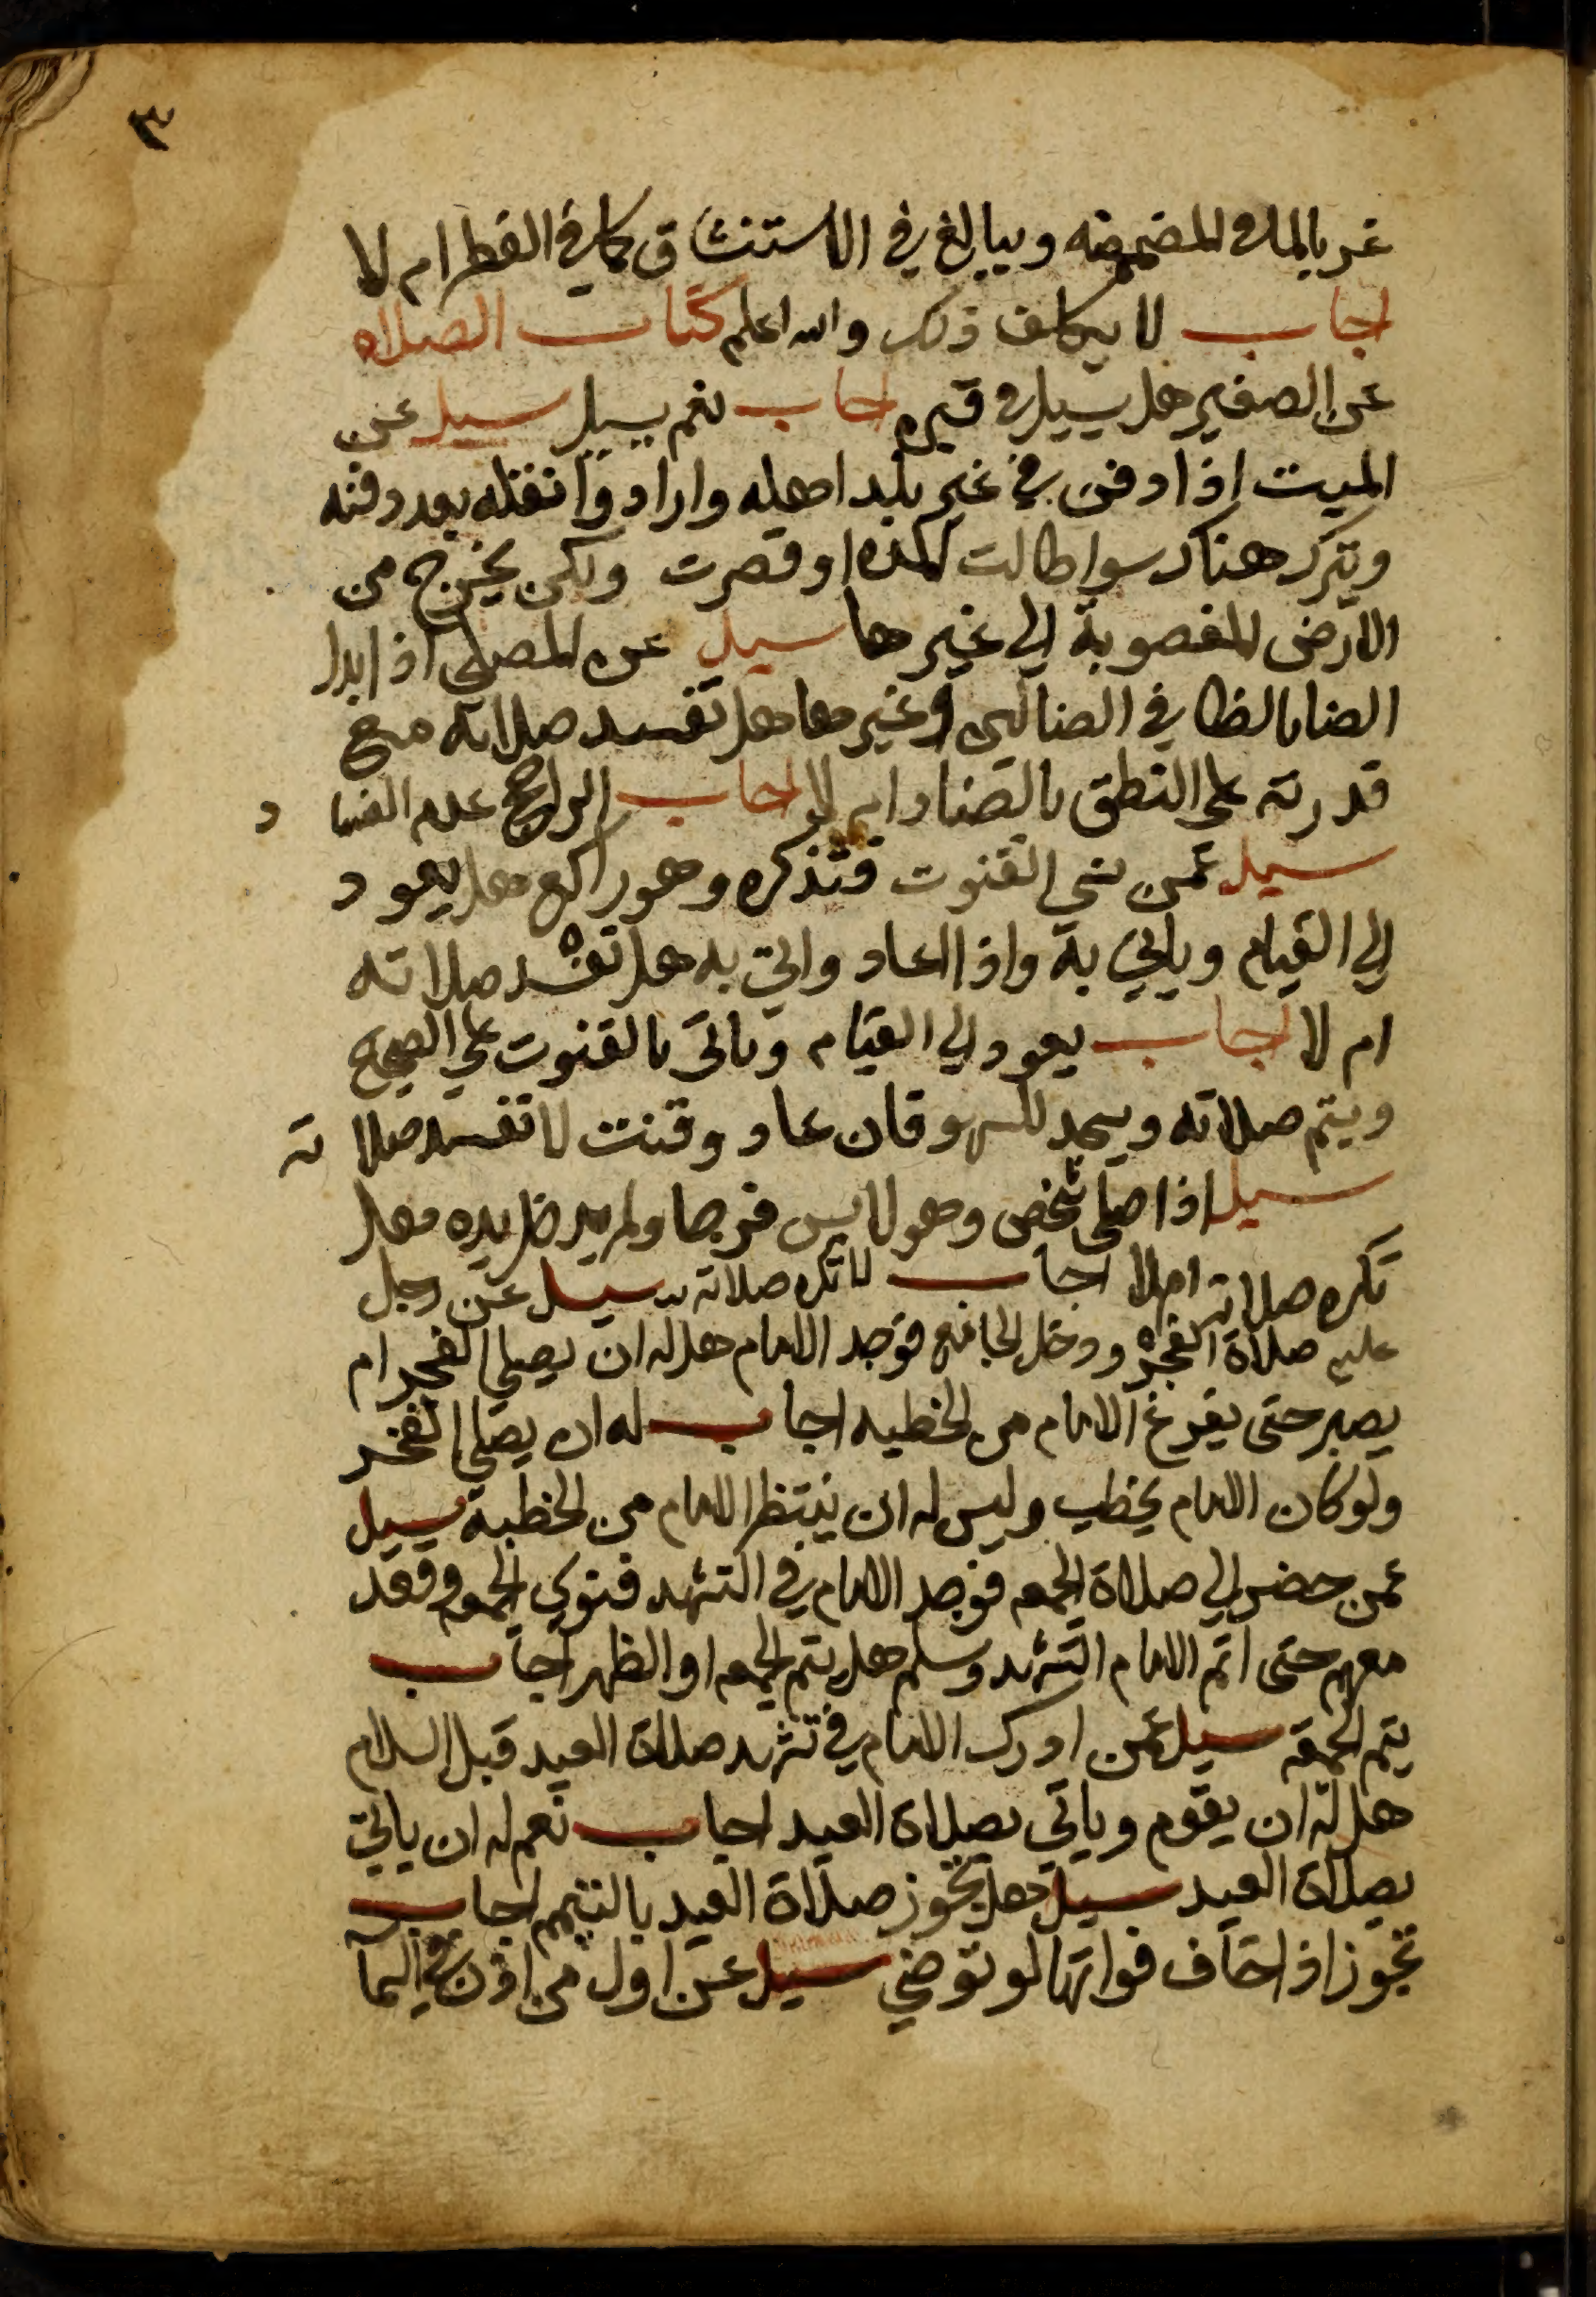 ٣
غر بالماء المضمضه ويبالغ في الاستنشاق كما في الفطر ام لا
اجاب لا يكلف ذلك والله اعلم كتاب الصلاه
عن الصغير هل يسيل في قبره اجاب نعم يسيل سيل عن
الميت اذا دفن في غير بلد اهله وارادوا نقله بعد دفنه
ويترك هناك سوا طالت المده او قصرت ولكن يخرج من
الارض المغصوبة الي غيرها سيل عن المصلي اذا ابدل
الضاد بالظا في الضالين او غيرها هل تفسد صلاته مع
قدرته علي النطق بالضاد ام لا اجاب الراجح عدم الفساد
سيل عمن نسي القنوت فتذكره وهو راكع هل يعود
الي القيام وياتي به واذا عاد واتي به هل تفسد صلاته
ام لا اجاب يعود الي القيام وياتي بالقنوت علي الصحيح
ويتم صلاته ويسجد للسهو فان عاد وقنت لا تفسد صلاته
سيل اذا صلي شخص وهو لابس فرجيا ولم يدخل يده هل
تكره صلاته ام لا اجاب لا تكره صلاته سيل عن رجل
عليه صلاة الفجر ودخل الجامع فوجد الامام هل له ان يصلي الفجر ام
يصبر حتى يفرغ الامام من الخطبه اجاب له ان يصلي الفجر
ولو كان الامام يخطب وليس له ان ينتظر الامام من الخطبة سيل
عمن حضر الي صلاة الجمعه فوجد الامام في التشهد فنوي الجمعه وقعد
معهم حتى اتم الامام التشهد وسلم هل يتم الجمعه او الظهر اجاب
يتم الجمعة سيل عمن ادرك الامام في تشهد صلاة العيد قبل السلام
هل له ان يقوم وياتي بصلاة العيد اجاب نعم له ان ياتي
بصلاة العيد سيل هل تجوز صلاة العيد بالتيمم اجاب
تجوز اذا خاف فواتها لو توضي سيل عن اول من اذن في السما